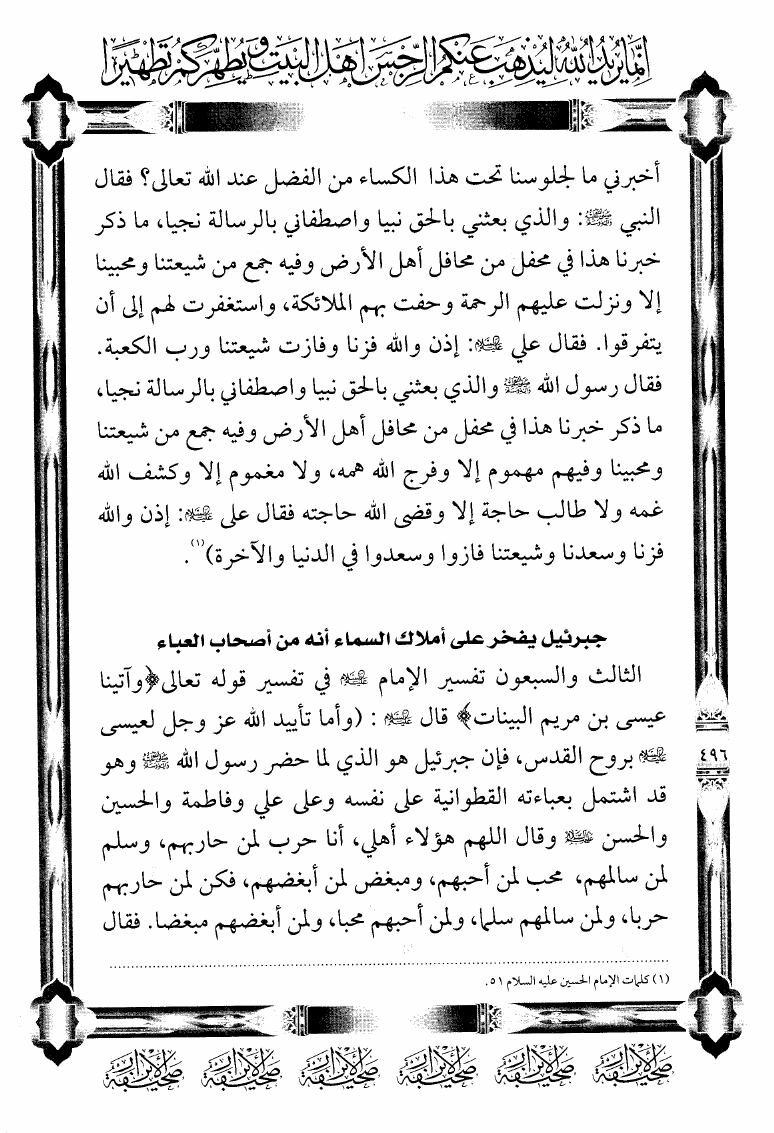 إنما يريد الله ليذهب عنكم الرجس أهل البيت ويطهركم تطهيرا
أخبرني ما لجلوسنا تحت هذا الكساء من الفضل عند الله تعالى؟ فقال
النبي ﷺ: والذي بعثني بالحق نبيا واصطفاني بالرسالة نجيا، ما ذكر
خبرنا هذا في محفل من محافل أهل الأرض وفيه جمع من شيعتنا ومحبينا
إلا ونزلت عليهم الرحمة وحفت بهم الملائكة، واستغفرت لهم إلى أن
يتفرقوا. فقال علي عليه السلام: إذن والله فزنا وفازت شيعتنا ورب الكعبة.
فقال رسول الله ﷺ والذي بعثني بالحق نبيا واصطفاني بالرسالة نجيا،
ما ذكر خبرنا هذا في محفل من محافل أهل الأرض وفيه جمع من شيعتنا
ومحبينا وفيهم مهموم إلا وفرج الله همه، ولا مغموم إلا وكشف الله
غمه ولا طالب حاجة إلا وقضى الله حاجته فقال على عليه السلام: إذن والله
فزنا وسعدنا وشيعتنا فازوا وسعدوا في الدنيا والآخرة)(١).
جبرئيل يفخر على أملاك السماء أنه من أصحاب العباء
الثالث والسبعون تفسير الإمام عليه السلام في تفسير قوله تعالى﴿وآتينا
عيسى بن مريم البينات﴾ قال عليه السلام : (وأما تأييد الله عز وجل لعيسى
عليه السلام بروح القدس، فإن جبرئيل هو الذي لما حضر رسول الله ﷺ وهو
٤٩٦
قد اشتمل بعباءته القطوانية على نفسه وعلى علي وفاطمة والحسين
والحسن عليه السلام وقال اللهم هؤلاء أهلي، أنا حرب لمن حاربهم، وسلم
لمن سالمهم، محب لمن أحبهم، ومبغض لمن أبغضهم، فكن لمن حاربهم
حربا، ولمن سالمهم سلما، ولمن أحبهم محبا، ولمن أبغضهم مبغضا. فقال
(١) كلمات الإمام الحسين عليه السلام ٥١.
صحيفة الأبرار صحيفة الأبرار صحيفة الأبرار صحيفة الأبرار صحيفة الأبرار صحيفة الأبرار